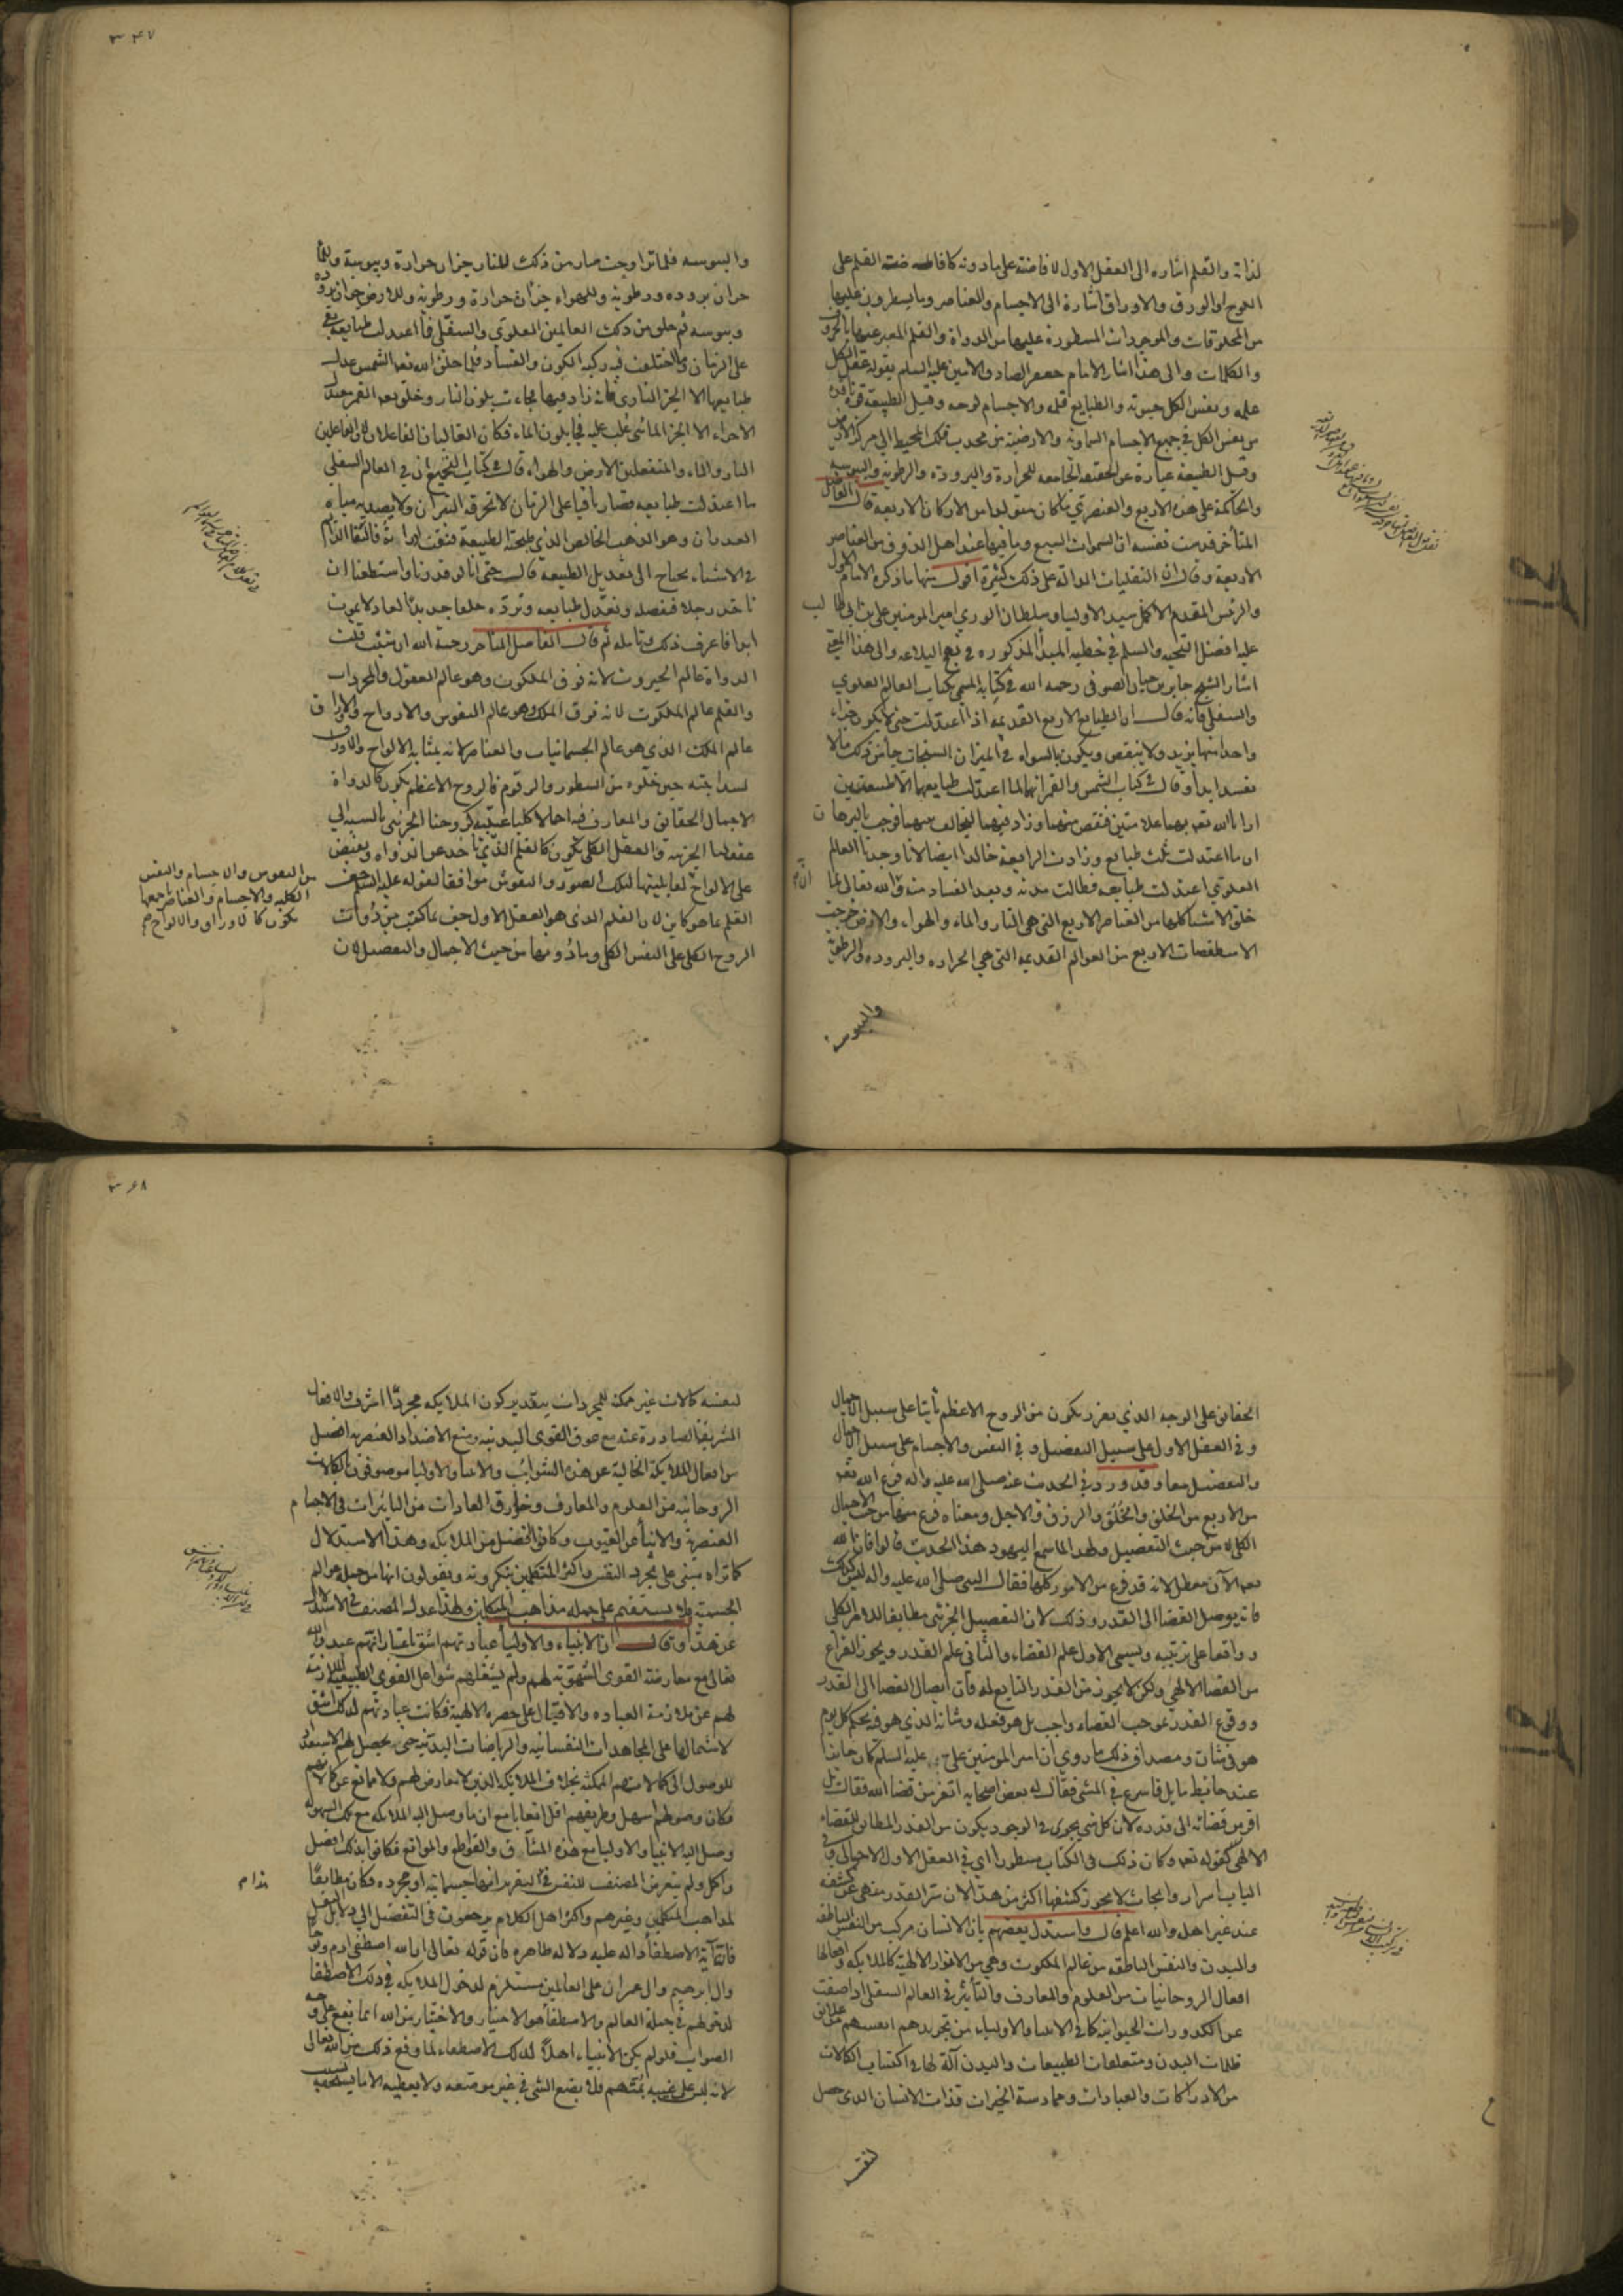 لذاته والقلم اشاره الى العقل الاول لافاضته على ما دونه كافاضة القلم على
اللوح او الورق والاوراق اشارة الى الاجسام والعناصر وما يسطرون عليها
من المخلوقات والموجودات المسطورة عليها من الدواة والقلم المعبر عنها بالحروف
والكلمات والى هذا اشار الامام جعفر الصادق الامين عليه السلم بقوله عقل الكل
علمه ونفس الكل حيوته والطبايع قلمه والاجسام لوحه وقيل الطبيعة قوة نافذة
من نفس الكل في جميع الاجسام السماوية والارضية من محدب فلك المحيط الى مركز الارض
وقيل الطبيعة عبارة عن الحقيقة الجامعة للحرارة والبرودة والرطوبة واليبوسة
والحاكمة على هذه الاربع والعنصري ما كان متولدا من الاركان الاربعة قال الفاضل
المتأخر قدست نفسه ان السموات السبع وما فيها عند اهل الذوق من العناصر
الاربعة وقال ان النقليات الدالة على ذلك كثيرة اقول منها ما ذكره الامام الاول
والرئيس المقدم الاكمل سيد الاوليا وسلطان الورى امير المومنين علي بن ابي طالب
عليه افضل التحيه والسلم في خطبه المبدأ المذكوره في نهج البلاغه والى هذا المعنى
اشار الشيخ جابر بن حيان الصوفي رحمه الله في كتابه المسمى بكتاب العالم العلوي
والسفلي فانه قال ان الطبايع الاربع القديمه اذا اعتدلت حتى لا يكون جزاء
واحد منها يزيد ولا ينقص ويكون بالسواء في الميزان المستجاب جأ من ذلك ما لا
يفسد ابدا وقال في كتاب الشمس والقمر انهما لما اعتدلت طبايعهما الا طبيعتين
ارانا الله تعالى بهما علامتين فنقص منهما وزاد فيهما ليخالف بينهما فوجب بالبرهان
ان ما اعتدلت ثلث طبايع وزادت الرابعة خالدا ايضا لانا وجدنا العالم
العلوي اعتدلت طبايعه فطالت مدته وبعد الفساد منه والله تعالى لما
خلق الاشيا كلها من العناصر الاربع التي هي النار والماء والهواء والارض خرجت
الاسطقصات الاربع من العوالم القديمه التي هي الحراره والبروده والرطوبة
واليبوسة
٣٤٧
واليبوسه فلما تزاوجت صار من ذلك للنار جزان حرارة ويبوسة وللمأ
جزان بروده ورطوبة وللهواء جزأن حرارة ورطوبة وللارض جزان برودة
ويبوسه ثم خلق من ذلك العالمين العلوي والسفلي فما اعتدلت طبايعه بقي
على الزمان وما اختلفت فيه ركبه الكون والفساد فلما خلق الله تعالى الشمس عدل
طبايعها الا الجزء الناري فانه زاد فيها فجاءت بلون النار وخلق بعد القمر بعدل
الاجزاء الا الجزء المائي غلب عليه فجأ بلون الماء فكان الغالبان الفاعلان
النار والماء والمنفعلين الارض والهواء قال في كتاب التجميع ان في العالم السفلي
ما اعتدلت طبايعه فصار باقيا على الزمان لا تحرقه النيران ولا يصديه مياه
الغدران وهو الذهب الخالص الذي طبخته الطبيعة
في الاشياء يحتاج الى تعديل الطبيعة قال حتى انا لو قدرنا واستطعنا ان
ناخذ رجلا فنفصله ونعدل طبايعه ونرده خلقا جديدا لعاد لا يموت
ابدا فاعرف ذلك وتأمله ثم قال الفاضل المتأخر رحمة الله ان شئت قلت
الدواة عالم الجبروت لانه فوق الملكوت وهو عالم العقول والمجردات
والقلم عالم الملكوت لانه فوق الملك وهو عالم النفوس والارواح والاوراق
عالم الملك الذي هو عالم الجسمانيات والعناصر لانه بمثابه الالواح والاوراق
لسذاجته حين خلوه من السطور والرقوم فالروح الاعظم يكون كالدواة
لاجمال الحقايق والمعارف فيه اجمالا كليا غيبيا كروحنا الجزئي بالنسبه الى
عقلنا الجزئي والعقل الكلي يكون كالقلم الذي ياخذ عن الدواه ويفيض
على الالواح لقابليتها لتلك الصور والنقوش موافقا لقوله عليه السلم جف
القلم بما هو كاين لان القلم الذي هو العقل الاول جف عما كتب من دوات
الروح الكلي على النفس الكلي وما دونها من حيث الاجمال والتفصيل لان
من النفوس والاجسام والنفس
الكليه والاجسام والعناصر جميعها
يكون كالاوراق والالواح
الحقايق على الوجه الذي تقرر يكون من الروح الاعظم ثابتا على سبيل الاجمال
وفي العقل الاول على سبيل التفصيل وفي النفس والاجسام على سبيل الاجمال
والتفصيل معا وقد ورد في الحديث عنه صلى الله عليه واله فرغ الله تعالى
من الاربع من الخلق والخلق والرزق والاجل ومعناه فرغ منها من حيث الاجمال
الكلي لا من حيث التفصيل ولهذا لما سمع اليهود هذا الحديث قالوا فان الله
تعالى الآن معطل لانه قد فرغ من الامور كلها فقال النبي صلى الله عليه واله ليس كذلك
فانه يوصل القضا الى القدر وذلك لان التفصيل الجزئي مطابقا للامر الكلي
وواقعا على ترتيبه ويسمى الاول علم القضاء والثاني علم القدر ويجوز الفراغ
من القضا الالهي ولكن لا يجوز من القدر التابع له فان ايصال القضا الى القدر
ووقوع القدر بموجب القضاء واجب بل هو فعله وشانه الذي هو فيه بحكم كل يوم
هو في شان ومصداق ذلك ما روي ان امير المومنين علي عليه السلم كان جالسا
عند حايط مايل فاسرع في المشي فقال له بعض اصحابه اتفر من قضا الله فقال بل
افر من قضائه الى قدره لان كل شي يجري في الوجود يكون من القدر المطابق للقضاء
الالهي كقوله تعالى وكان ذلك في الكتاب مسطورا اي في العقل الاول الاجمالي وفي
الباب اسرار وابحاث لا يجوز كشفها اكثر من هذا لان سر القدر منهي عن كشفه
عند غير اهله والله اعلم قال واستدل بعضهم بان الانسان مركب من النفس الناطقة
والبدن والنفس الناطقه من عالم الملكوت وهي من الانوار الالهية كالملايكه وافعالها
افعال الروحانيات من العلوم والمعارف والتأثير في العالم السفلي اذا صفت
عن الكدورات الحيوانية كما في الانبيا والاولياء من تجريدهم انفسهم عن علايق
ظلمات البدن ومتعلقات الطبيعيات والبدن آلة لها في اكتساب الكمالات
من الادراكات والعبادات وممارسة الخيرات فذات الانسان الذي حصل
لنفسه
٣٦٨
لنفسه كمالات غير ممكنه للمجردات بتقدير كون الملايكه مجردا اشرف والافعال
الشريفة الصادرة عنه مع عوق القوى البدنيه ومنع الاضداد العنصريه افضل
من افعال الملايكة الخالية عن هذه الشوائب والانبيا والاوليا موصوفون بالكمالات
الروحانيه من العلوم والمعارف وخوارق العادات من التاثيرات في الاجسام
العنصرية والانبأ عن الغيوب وكانوا افضل من الملايكه وهذا الاستدلال
كما تراه مبني على تجرد النفس واكثر المتكلمين ينكرونه ويقولون انها من جمله عوالم
الجسميه فلا يستقيم على جمله مذاهب المتكلمين ولهذا عدل المصنف في الاستدلال
عن هذا وقال ان الانبياء والاوليا عبادتهم اشق باعتبار انهم عبدوا الله
تعالى مع معارضة القوى الشهوية لهم ولم يشغلهم شواغل القوى الطبيعية اللازمة
لهم عن ملازمة العباده والاقبال على حضره الالهية فكانت عبادتهم لذلك اشق
لاشتمالها على المجاهدات النفسانيه والرياضات البدنيه حتى يحصل لهم الاستعداد
للوصول الى كمالاتهم الممكنه بخلاف الملايكه الذين لا معارض لهم ولا مانع عن كمالاتهم
فكان وصولهم اسهل وطريقهم اقل اتعابا مع ان ما وصل اليه الملايكه مع تلك السهوله
وصل اليه الانبيا والاوليا مع هذه المشاق والقواطع والموانع فكانوا بذلك افضل
واكمل ولم يتعرض المصنف للنفس في التقرير انها جسمانية او مجرده فكان مطابقا
لمذاهب المتكلمين وغيرهم واكثر اهل الكلام يرجعون في التفضيل الى دلايل النقل
فانها آية الاصطفأ داله عليه دلاله ظاهره فان قوله تعالى ان الله اصطفى ادم ونوحا
وال ابرهيم وال عمران على العالمين مستلزم لدخول الملايكه في ذلك الاصطفأ
لدخولهم في جملة العالم والاصطفأ هو الاختيار والاختيار من الله انما يقع على وجه
الصواب فلو لم يكن الانبياء اهلا لذلك الاصطفاء لما وقع ذلك من الله تعالى
لانه ليس على غيبه بمتهم فلا يضع الشي في غير موضعه ولا يعطيه الا ما يستحقه